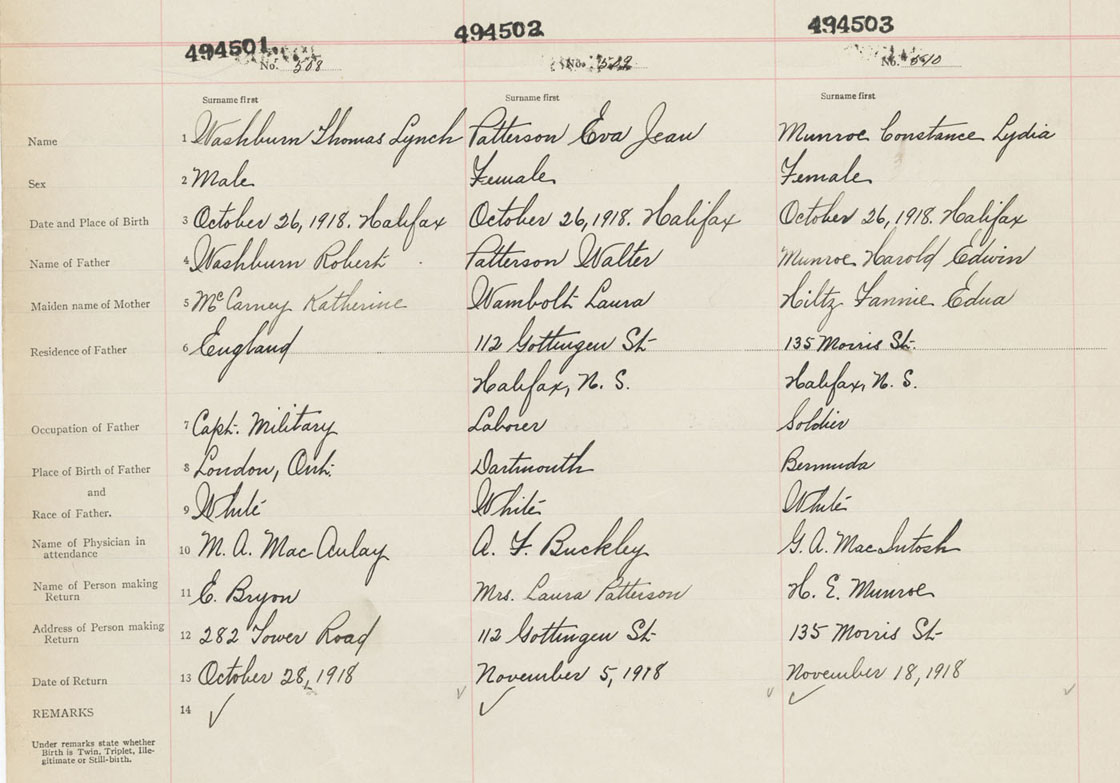 494501 494502 494503
No. 508 No. No. 510
Surname first Surname first Surname first
Name 1 Washburn Thomas Lynch Patterson Eva Jean Munroe Constance Lydia
Sex 2 Male Female Female
Date and Place of Birth 3 October 26, 1918. Halifax October 26, 1918. Halifax October 26, 1918. Halifax
Name of Father 4 Washburn Robert Patterson Walter Munroe Harold Edwin
Maiden name of Mother 5 McCarney Katherine Wambolt Laura Hiltz Fannie Edna
Residence of Father 6 England 112 Gottingen St 135 Morris St.
Halifax, N. S. Halifax, N. S.
Occupation of Father 7 Capt. Military Laborer Soldier
Place of Birth of Father 8 London, Ont. Dartmouth Bermuda
and
Race of Father. 9 White White White
Name of Physician in
attendance 10 M. A. MacAulay A. F. Buckley G. A. MacIntosh
Name of Person making
Return 11 E. Bryon Mrs. Laura Patterson H. E. Munroe
Address of Person making
Return 12 282 Tower Road 112 Gottingen St 135 Morris St
Date of Return 13 October 28, 1918 November 5, 1918 November 18, 1918
REMARKS 14
Under remarks state whether
Birth is Twin, Triplet, Ille-
gitimate or Still-birth.